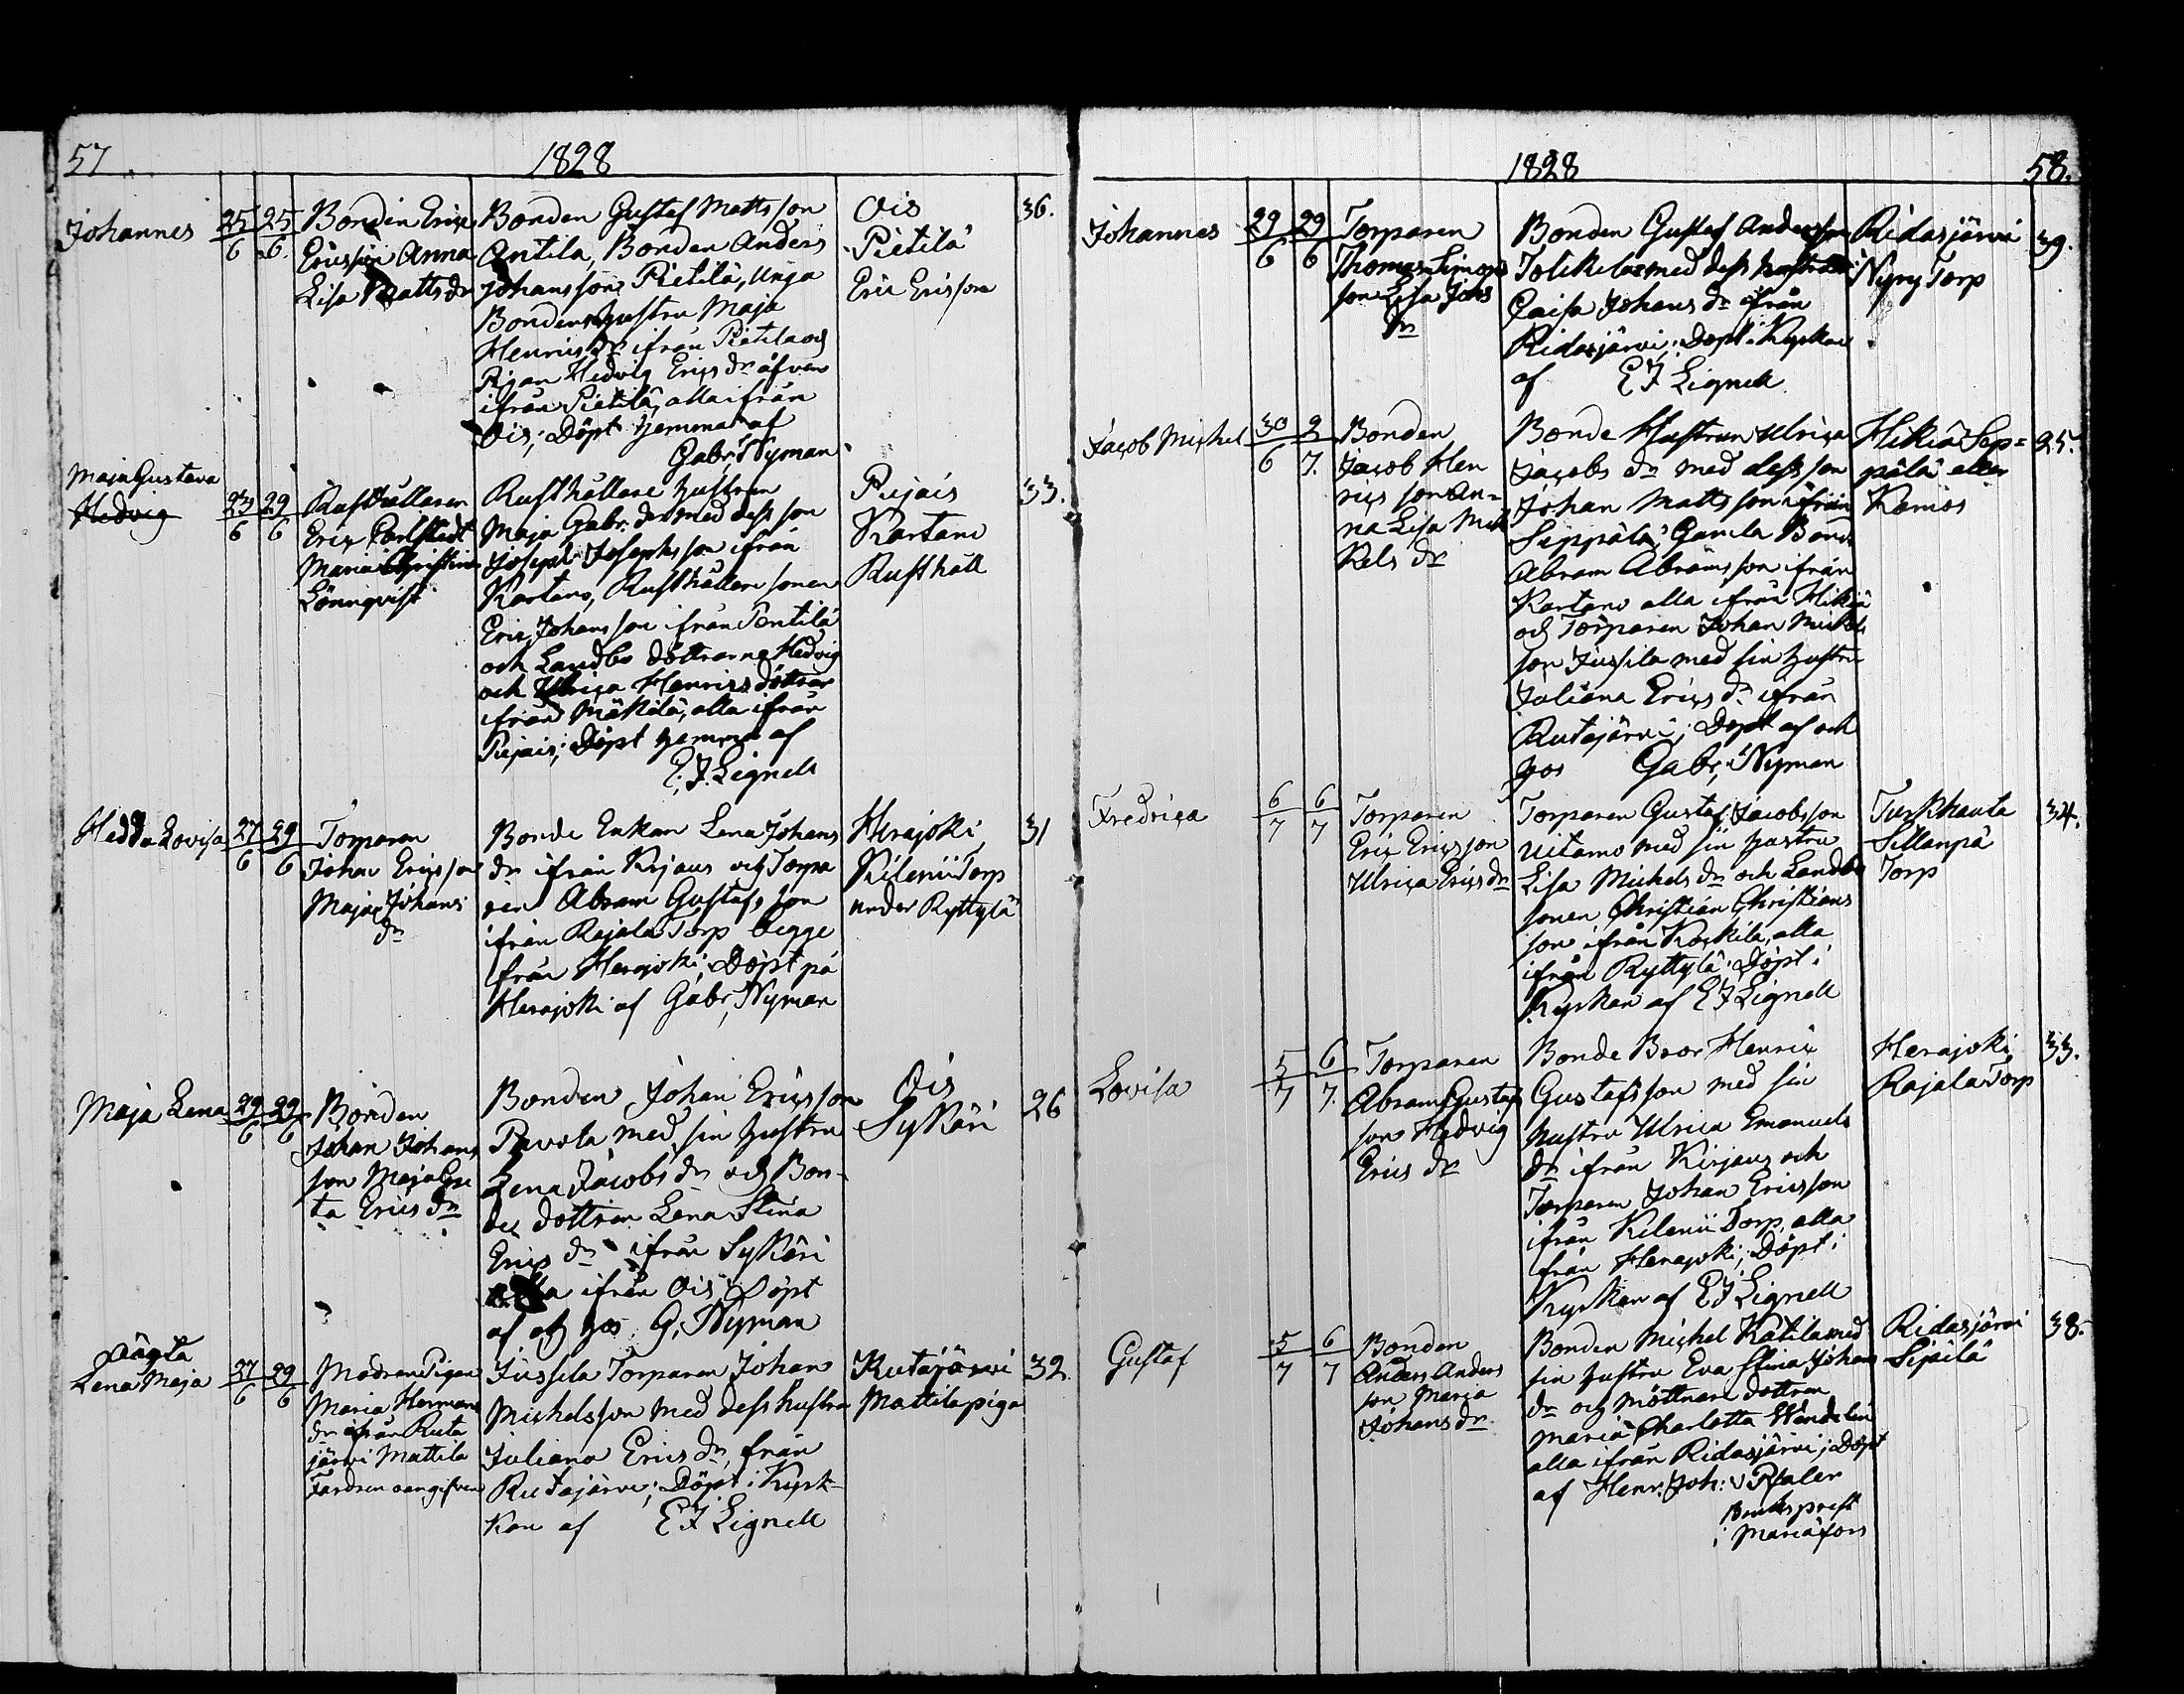 57.
1828
Johannes 25/6 25/6.
Bonden Eric
Ericsson Anna
Lisa Matts dr
Bonden Gustaf Matts son
Antila, Bonden Anders
Johansson Pietilä, Unga
Bondens hustru Maja
Henrics dr ifrån Pietilä och
Pigan Hedvig Erics dr äfven
ifrån Pietilä, alla ifrån
Ois; Döpt hemma af
Gabr, Nyman
Ois
Pietilä
Eric Ericsson
36.
Maja Gustava
Hedvig 23/6 29/6
Rusthållaren
Eric Carlstedt
Maria Christina
Lönnqvist
Rusthållare hustrun
Maja Gabr. dr med dess son
Joseph Josephsson ifrån
Kartano, Rusthållare sonen
Eric Johansson ifrån Pentilä
och Landbo döttrarna Hedvig
och Ulrica Henrics döttrar
ifrån Mäkilä, alla ifrån
Pujais; Döpt hemma af
E. J. Lignell
Pujais
Kartano
Rusthåll
33.
Hedda Lovisa 27/6 29/6
Torparen
Johan Ericsson
Maja Johans
dr
Bonde Enkan Lena Johans
dr ifrån Kirjaus och Torpa
ren Abram Gustafs son
ifrån Rajala Torp begge
från Herajoki; Döpt på
Herajoki af Gabr, Nyman
Herajoki
Kilenii Torp
under Ryttylä
31
Maja Lena 29/6 29/6
Bonden
Johan Johans
son Maja Gre
ta Erics dr
Bonden Johan Ericsson
Pavola med sin hustru
Lena Jacobs dr och Bon-
de dottren Lena Stina
Erics dr ifrån Sykäri
alla ifrån Ois; Döpt
af och hos G, Nyman
Ois
Sykäri
26
Oägta
Lena Maja 27/6 29/6
Modren Pigan
Maria Hermans
dr ifrån Ruta
järvi Mattila
Fadren oangifven
Jussila Torparen Johan
Michelsson med dess hustru
Juliana Erics dr, från
Rutajärvi; Döpt i Kyrk-
kan af E J Lignell
Rutajärvi
Mattila piga
32.
1828
58.
Johannes 29/6 29/6
Torparen
Thomas Simons
son Lisa Johs
dr
Bonden Gustaf Andersson
Jolikela med dess hustru
Caisa Johans dr ifrån
Ridasjärvi; Döpt i Kyrkan
af E J Lignell
Ridasjärvi
Nyny Torp
39.
Jacob Michel 30/6 2/7.
Bonden
Jacob Hen
rics son An-
na Lisa Mick
kels dr
Bonde Hustrun Ulrica
Jacobs dr med dess son
Johan Matts son ifrån
Seppälä, Gamla Bond
Abram Abramsson ifrån
Kartano alla ifrån Hikiä
och Torparen Johan Mickels
son Jussila med sin hustru
Juliana Erics dr ifrån
Rutajärvi; Döpt af och
hos Gabr, Nyman
Hikiä Sep-
pälä eller
Kamios
25.
Fredrica 6/7 6/7
Torparen
Eric Ericsson
Ulrica Erics dr
Torparen Gustaf Jacobsson
Uitamo med sin hustru
Lisa Michels dr och Landbo
sonen Christian Christians
son ifrån Koskila, alla
ifrån Ryttylä. Döpt i
Kyrkan af E J Lignell
Turkhauta
Sillanpä
Torp
34.
Lovisa 5/7 6/7.
Torparen
Abram Gustafs
son Hedvig
Erics dr
Bonde Bror Henric
Gustafsson med sin
hustru Ulrica Emanuels
dr ifrån Kirjaus och
Torparen Johan Ericsson
ifrån Kilenii Torp, alla
från Herajoki; Döpt i
Kyrkan af E J Lignell
Herajoki
Rajala Torp
33.
Gustaf 5/7 6/7
Bonden
Anders Anders
son Maria
Johans dr
Bonden Michel Kätilä med
sin hustru Eva Stina Johans
dr och Möttnare dottren
Maria Charlotta Wendelin
alla ifrån Ridasjärvi; Döpt
af Henr. Joh: v Pfaler
Bruks prest
i Mariafors
Ridasjärvi
Sipilä
38.